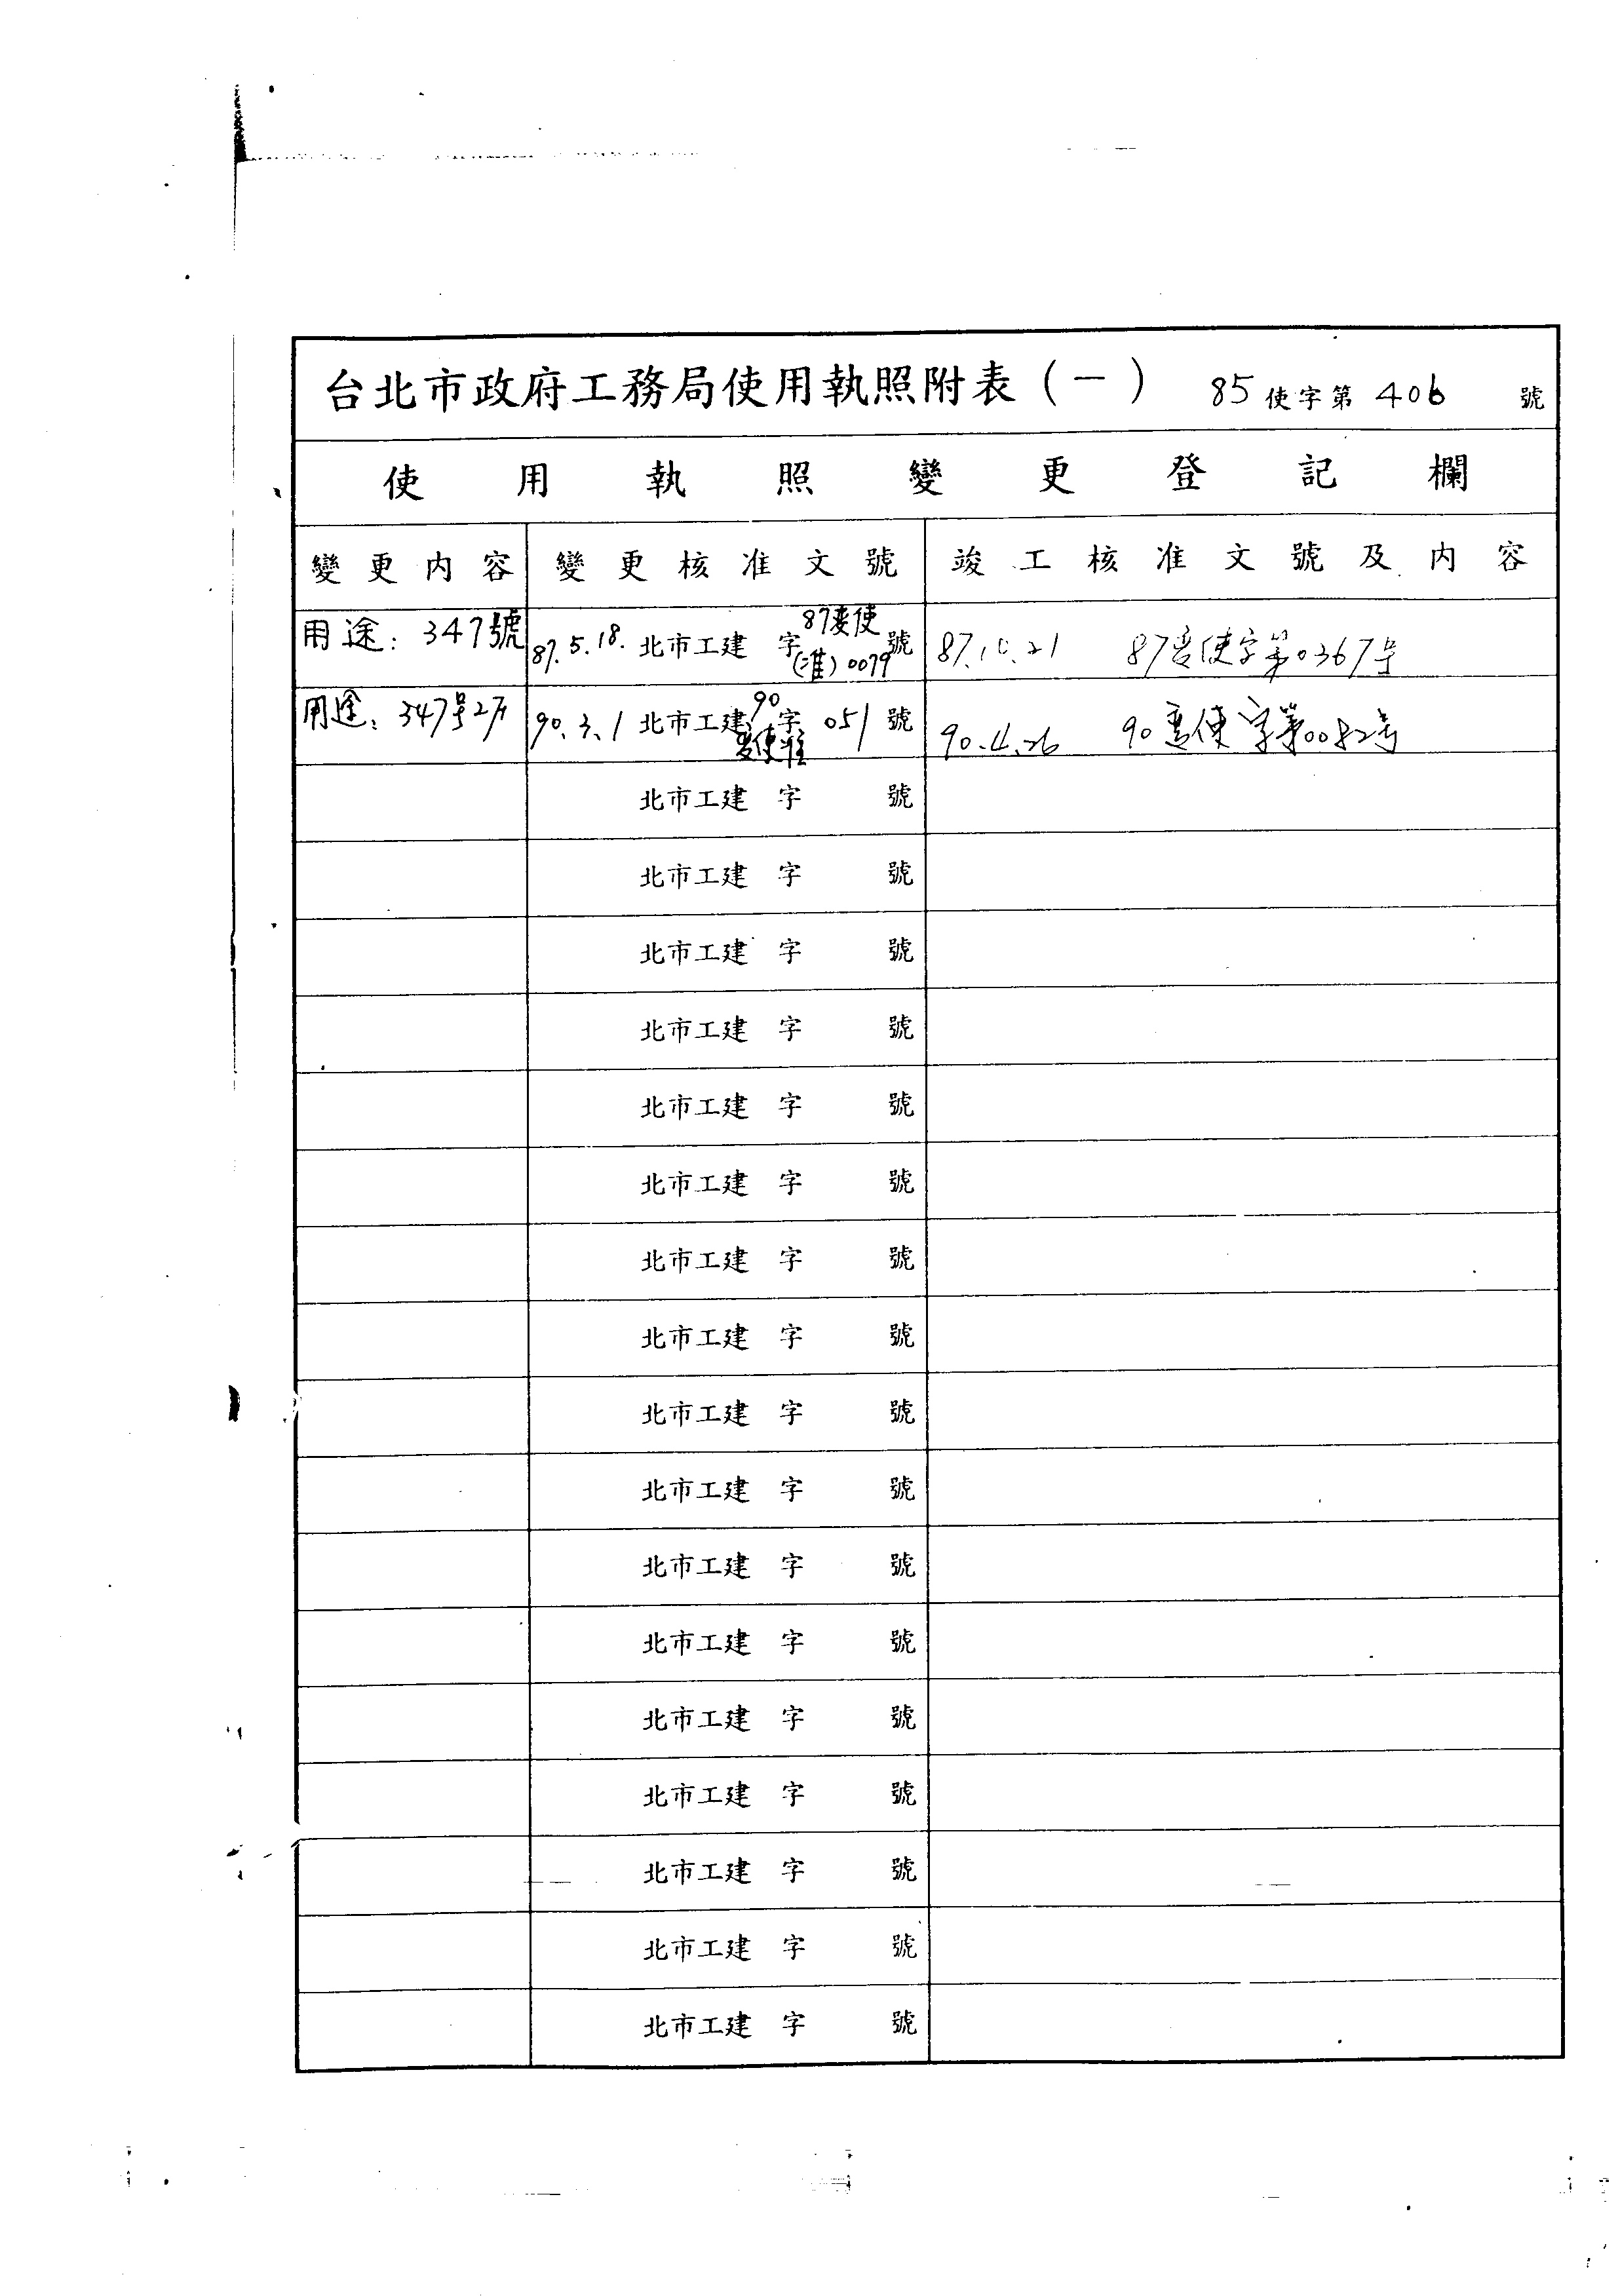 台北市政府工務局使用執照附表(一) 85使字第406 號
使用執照變更登記欄
變更內容 變更核准文號 竣工核准文號及內容
用途:347號 87.5.18. 北市工建 字 87变使(准)0079 號 87.10.21 87变使字第0367号
用途:347号2F 90.3.1 北市工建 90 字 变使准 051 號 90.4.26 90变使字第0082号
北市工建 字 號
北市工建 字 號
北市工建 字 號
北市工建 字 號
北市工建 字 號
北市工建 字 號
北市工建 字 號
北市工建 字 號
北市工建 字 號
北市工建 字 號
北市工建 字 號
北市工建 字 號
北市工建 字 號
北市工建 字 號
北市工建 字 號
北市工建 字 號
北市工建 字 號